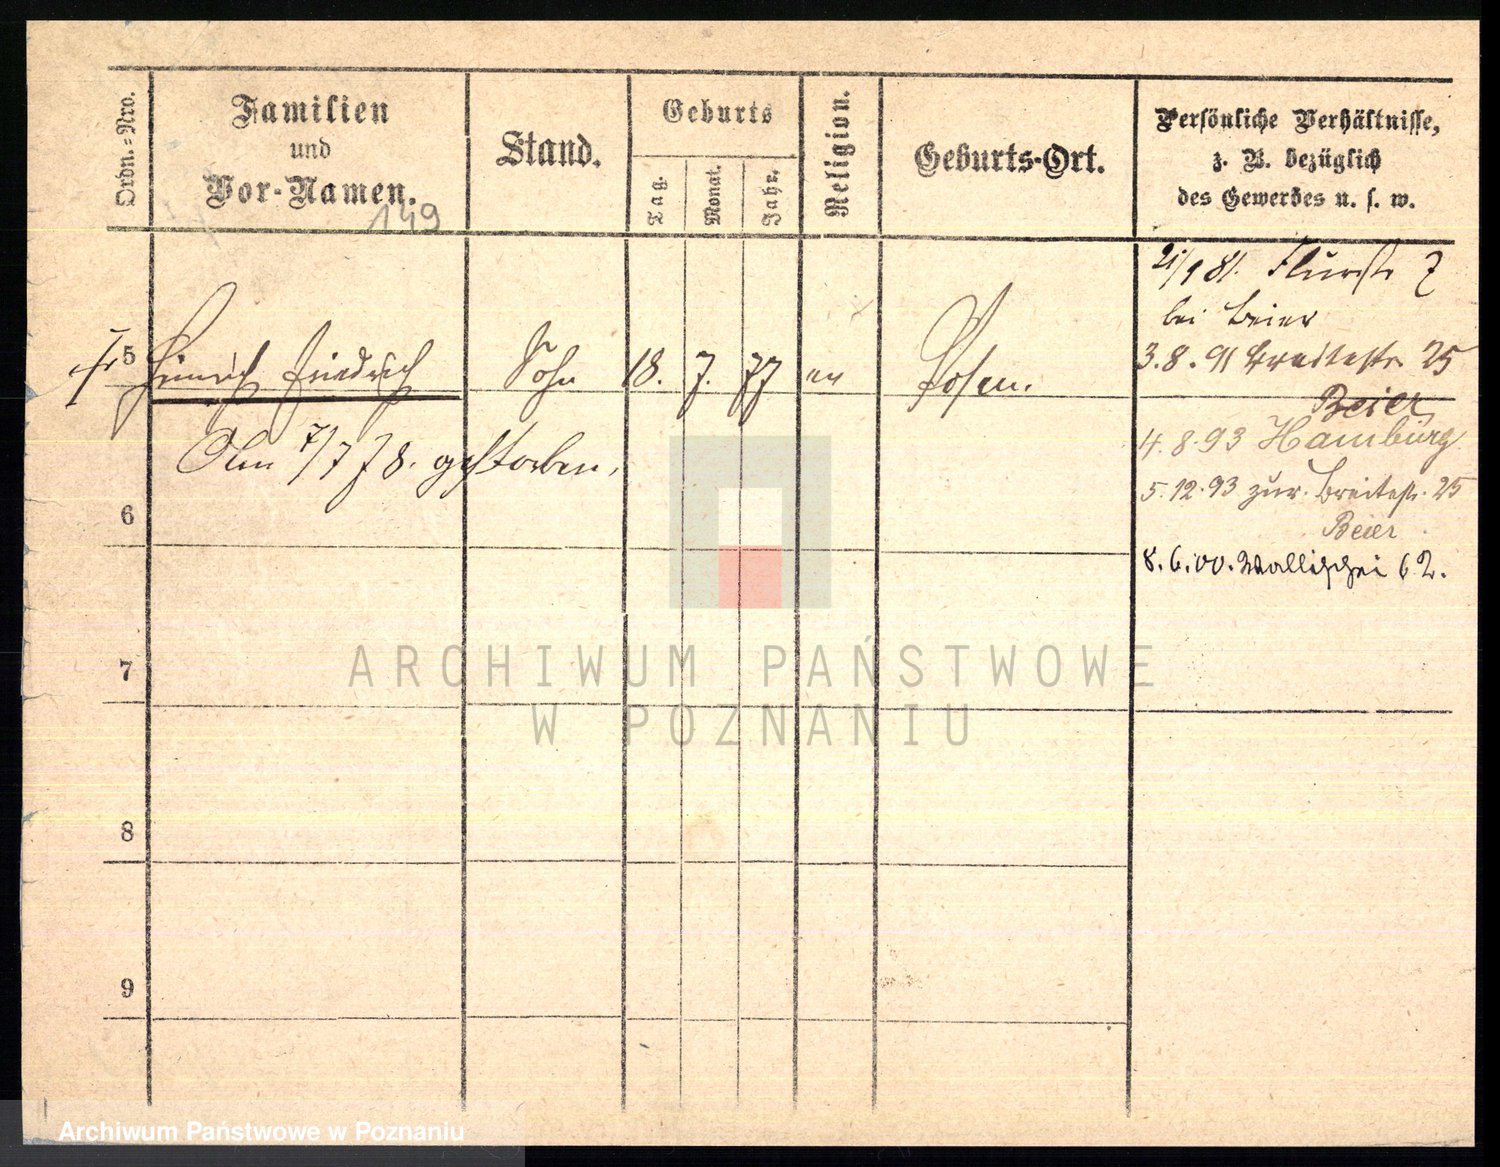 Ordn.-Nro.
Familien
und
Vor-Namen.
149
Stand.
Geburts
Tag.
Monat.
Jahr.
Religion.
Geburts-Ort.
Persönliche Verhältnisse,
z. B. bezüglich
des Gewerbes u. s. w.
5 Heinrich Friedrich Sohn 18. 7. 77 ev Posen.
Am 7/7 78. gestorben.
21/9 81. Flurstr 7
bei Beier
3.8.91 Breitestr 25
Beier
4.8.93 Hamburg
5.12.93 zur. Breitestr. 25
Beier
8.6.00. Wallischei 62.
6
7
8
9
ARCHIWUM PAŃSTWOWE
W POZNANIU
Archiwum Państwowe w Poznaniu